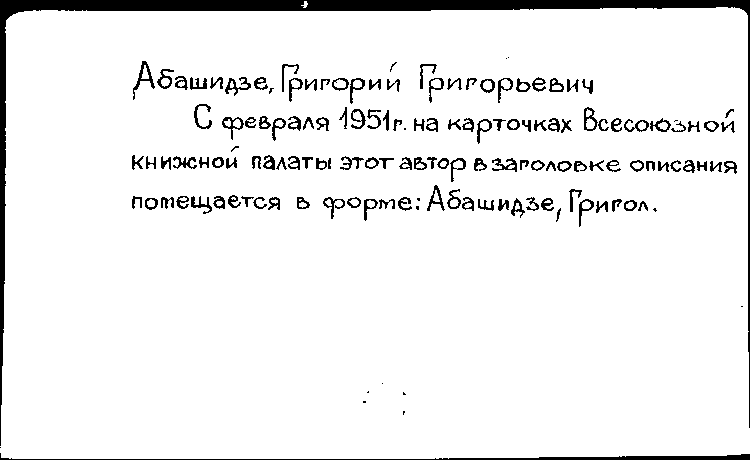 Абашидзе, Григорий Григорьевич
С февраля 1951г. на карточках Всесоюзной
книжной палаты этот автор в заголовке описания
помещается в форме: Абашидзе, Григол.